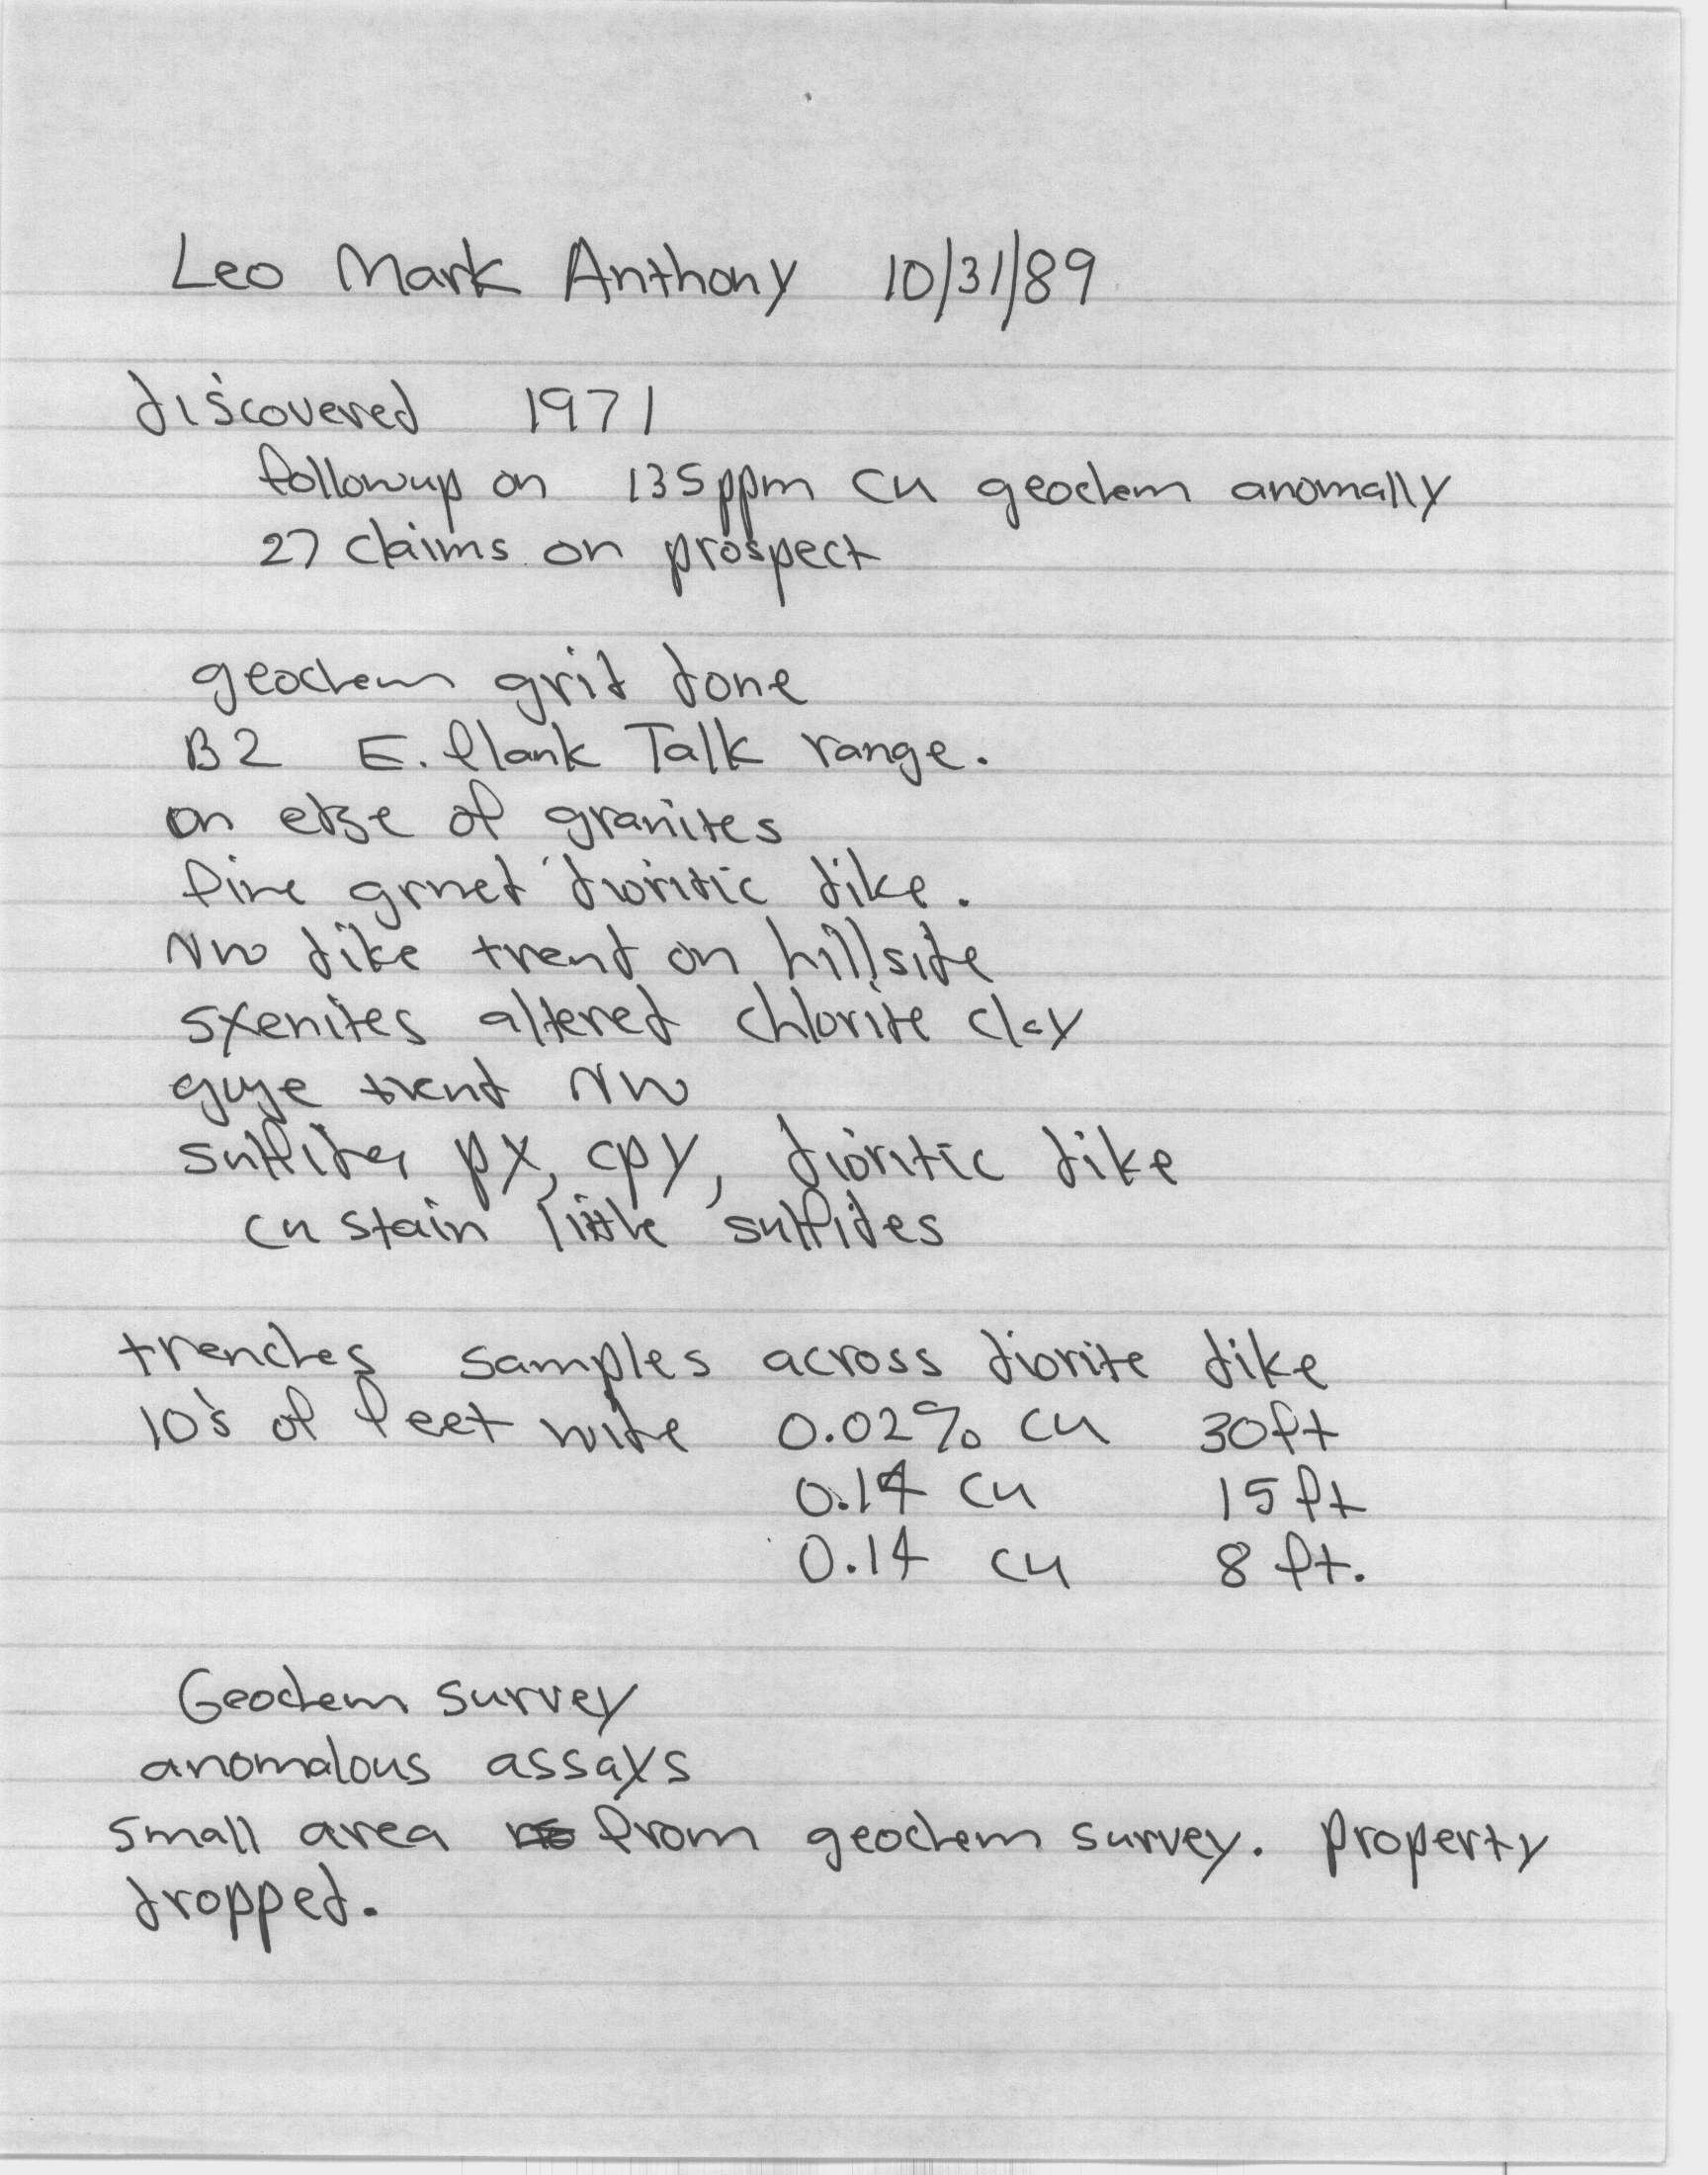 Leo Mark Anthony 10/31/89
discovered 1971
followup on 135ppm Cu geochem anomally
27 claims on prospect
geochem grid done
B2 E. flank Talk range.
on edge of granites
fine grned dioritic dike.
NW dike trend on hillside
syenites altered chlorite clay
trend NW
sulfides py, cpy, dioritic dike
Cu stain little sulfides
trenches samples across diorite dike
10's of feet wide 0.02% Cu 30ft
0.14 Cu 15 ft
0.14 Cu 8 ft.
Geochem survey
anomalous assays
small area from geochem survey. property
dropped.